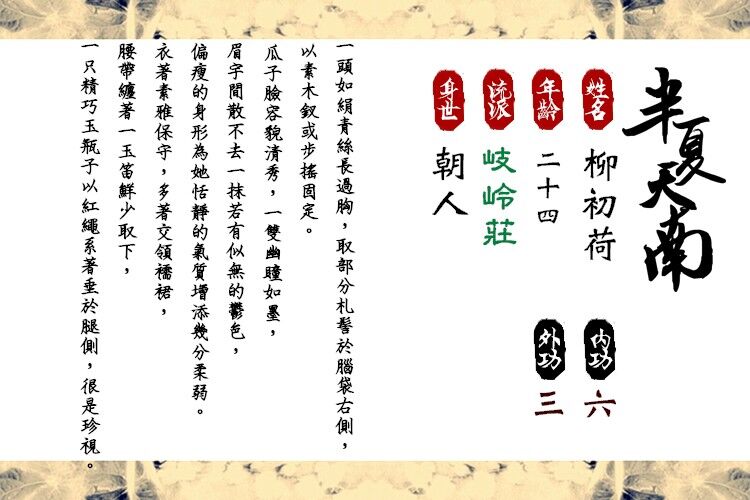 半夏天南
姓名
柳初荷
內功
六
年齡
二十四
外功
三
流派
岐岭莊
身世
朝人
一頭如絹青絲長過胸，取部分札髻於腦袋右側，
以素木釵或步搖固定。
瓜子臉容貌清秀，一雙幽瞳如墨，
眉宇間散不去一抹若有似無的鬱色，
偏瘦的身形為她恬靜的氣質增添幾分柔弱。
衣著素雅保守，多著交領襦裙，
腰帶纏著一玉笛鮮少取下，
一只精巧玉瓶子以紅繩系著垂於腿側，很是珍視。